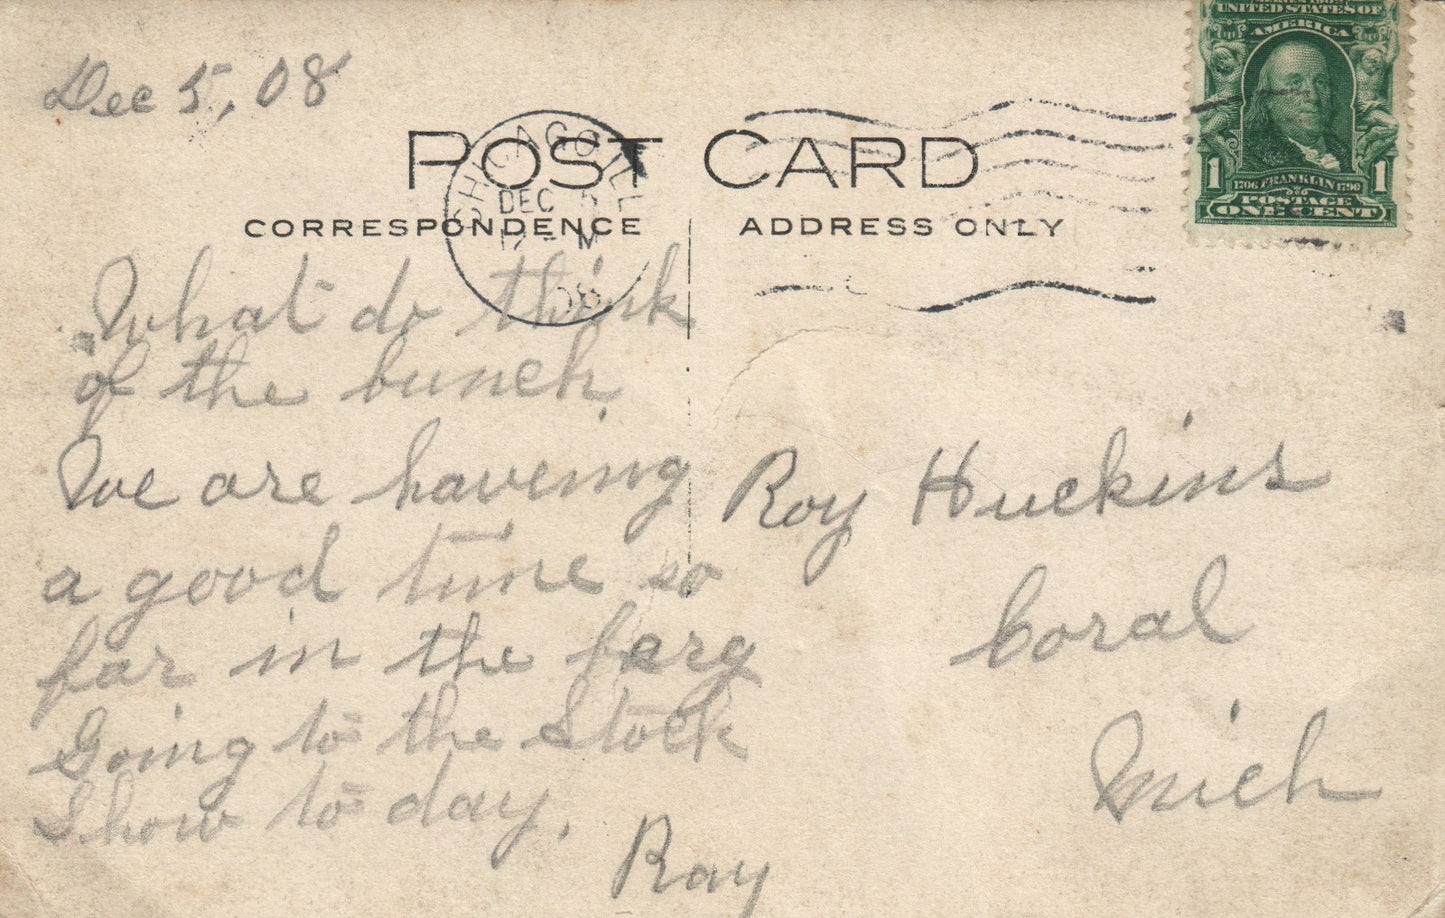 Dec 5, 08
POST CARD
CORRESPONDENCE
ADDRESS ONLY
CHICAGO, ILL
DEC 5
12 - M
08
UNITED STATES OF
AMERICA
1
1706 FRANKLIN 1790
1
POSTAGE
ONE CENT
What do think
of the bunch.
We are haveing
a good time so
far in the berg
Going to the Stock
Show to day.
Ray
Roy Huckins
Coral
Mich